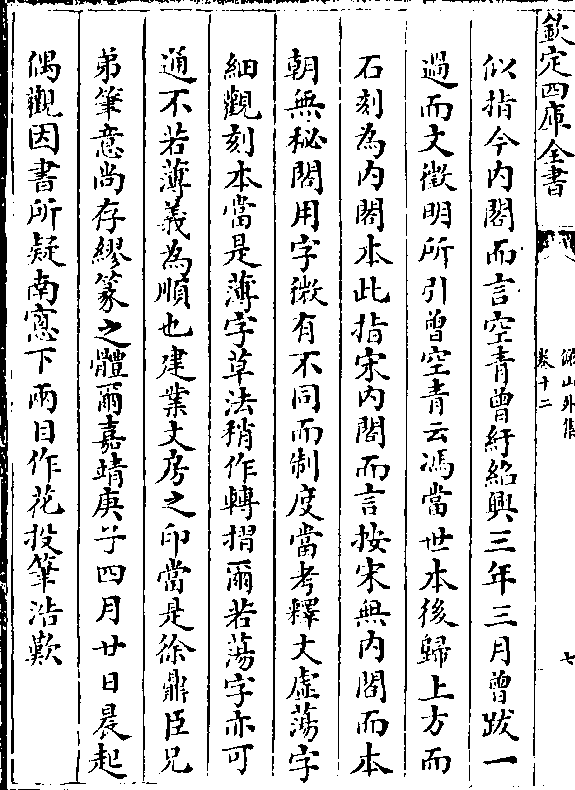 欽定四庫全書
儼山外集
卷十二
七
似指今内閣而言空青曾紆紹興三年三月曾跋一
過而文徵明所引曾空青云馮當世本後歸上方而
石刻為内閣本此指宋内閣而言按宋無内閣而本
朝無秘閣用字微有不同而制度當考釋文虚蕩字
細觀刻本當是薄字草法稍作轉摺爾若蕩字亦可
通不若薄義為順也建業文房之印當是徐鼎臣兄
弟筆意尚存繆篆之體爾嘉靖庚子四月廿日晨起
偶觀因書所疑南窓下兩目作花投筆浩歎